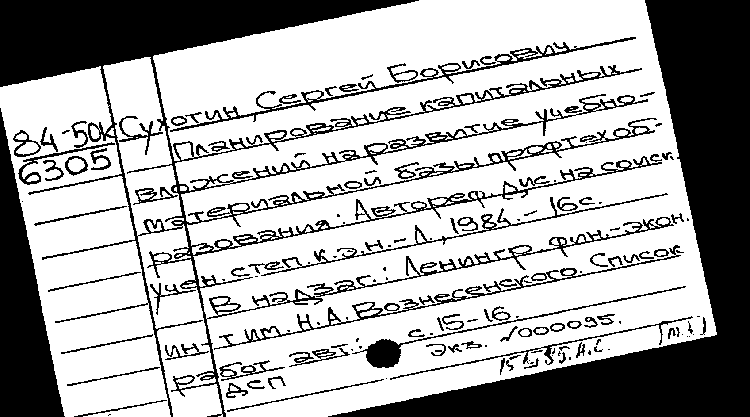 84-50К
6305
Сухотин, Сергей Борисович.
Планирование капитальных
вложений на развитие учебно-
материальной базы профтехоб-
разования: Автореф. дис. на соиск.
учен. степ. к.э.н. - Л., 1984. - 16с.
В надзаг.: Ленингр. фин.-экон.
ин-т им. Н.А. Вознесенского. Список
работ авт.: с. 15-16.
ДСП экз. №000095.